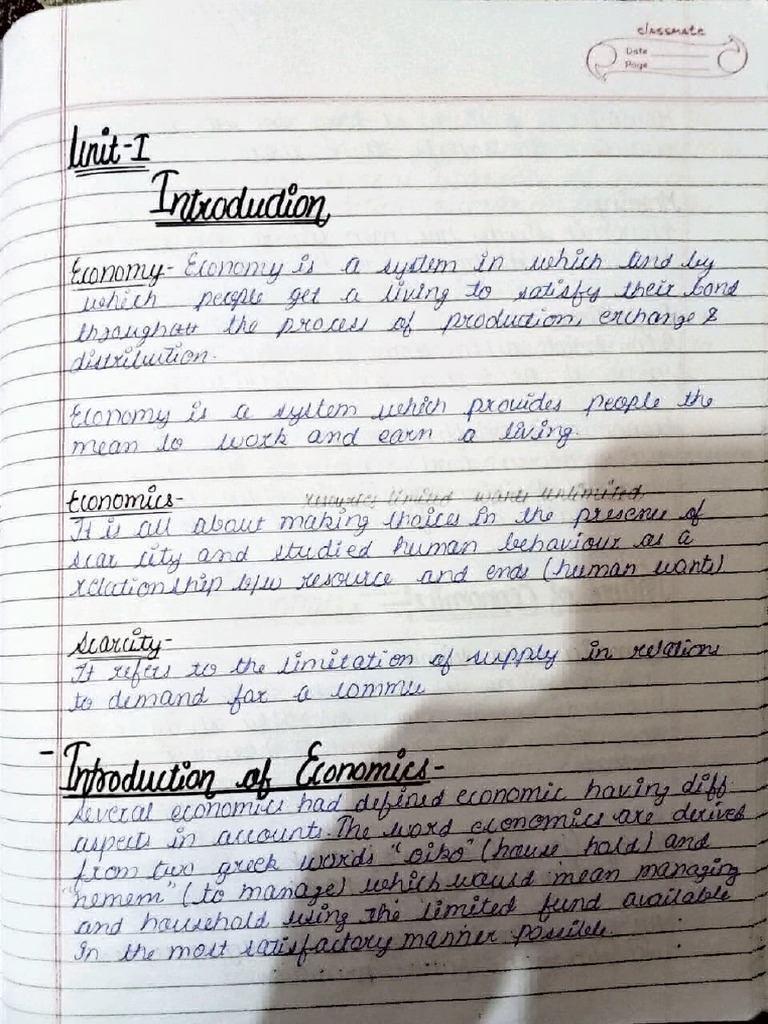 classmate
Date
Page
Unit-I
Introduction
Economy- Economy is a system in which and by
which people get a living to satisfy their
throughout the process of production, exchange &
distribution.
Economy is a system which provides people the
mean to work and earn a living.
Economics- resources limited wants unlimited
It is all about making choices in the presence of
scarcity and studied human behaviour as a
relationship b/w resource and ends (human wants)
Scarcity-
It refers to the limitation of supply in relation
to demand for a commu
- Introduction of Economics-
Several economics had defined economic having diff.
aspects in accounts. The word economics are derives
from two greek words "oiko" (house hold) and
"nemem" (to manage) which would mean managing
and household using the limited fund available
In the most satisfactory manner possible.